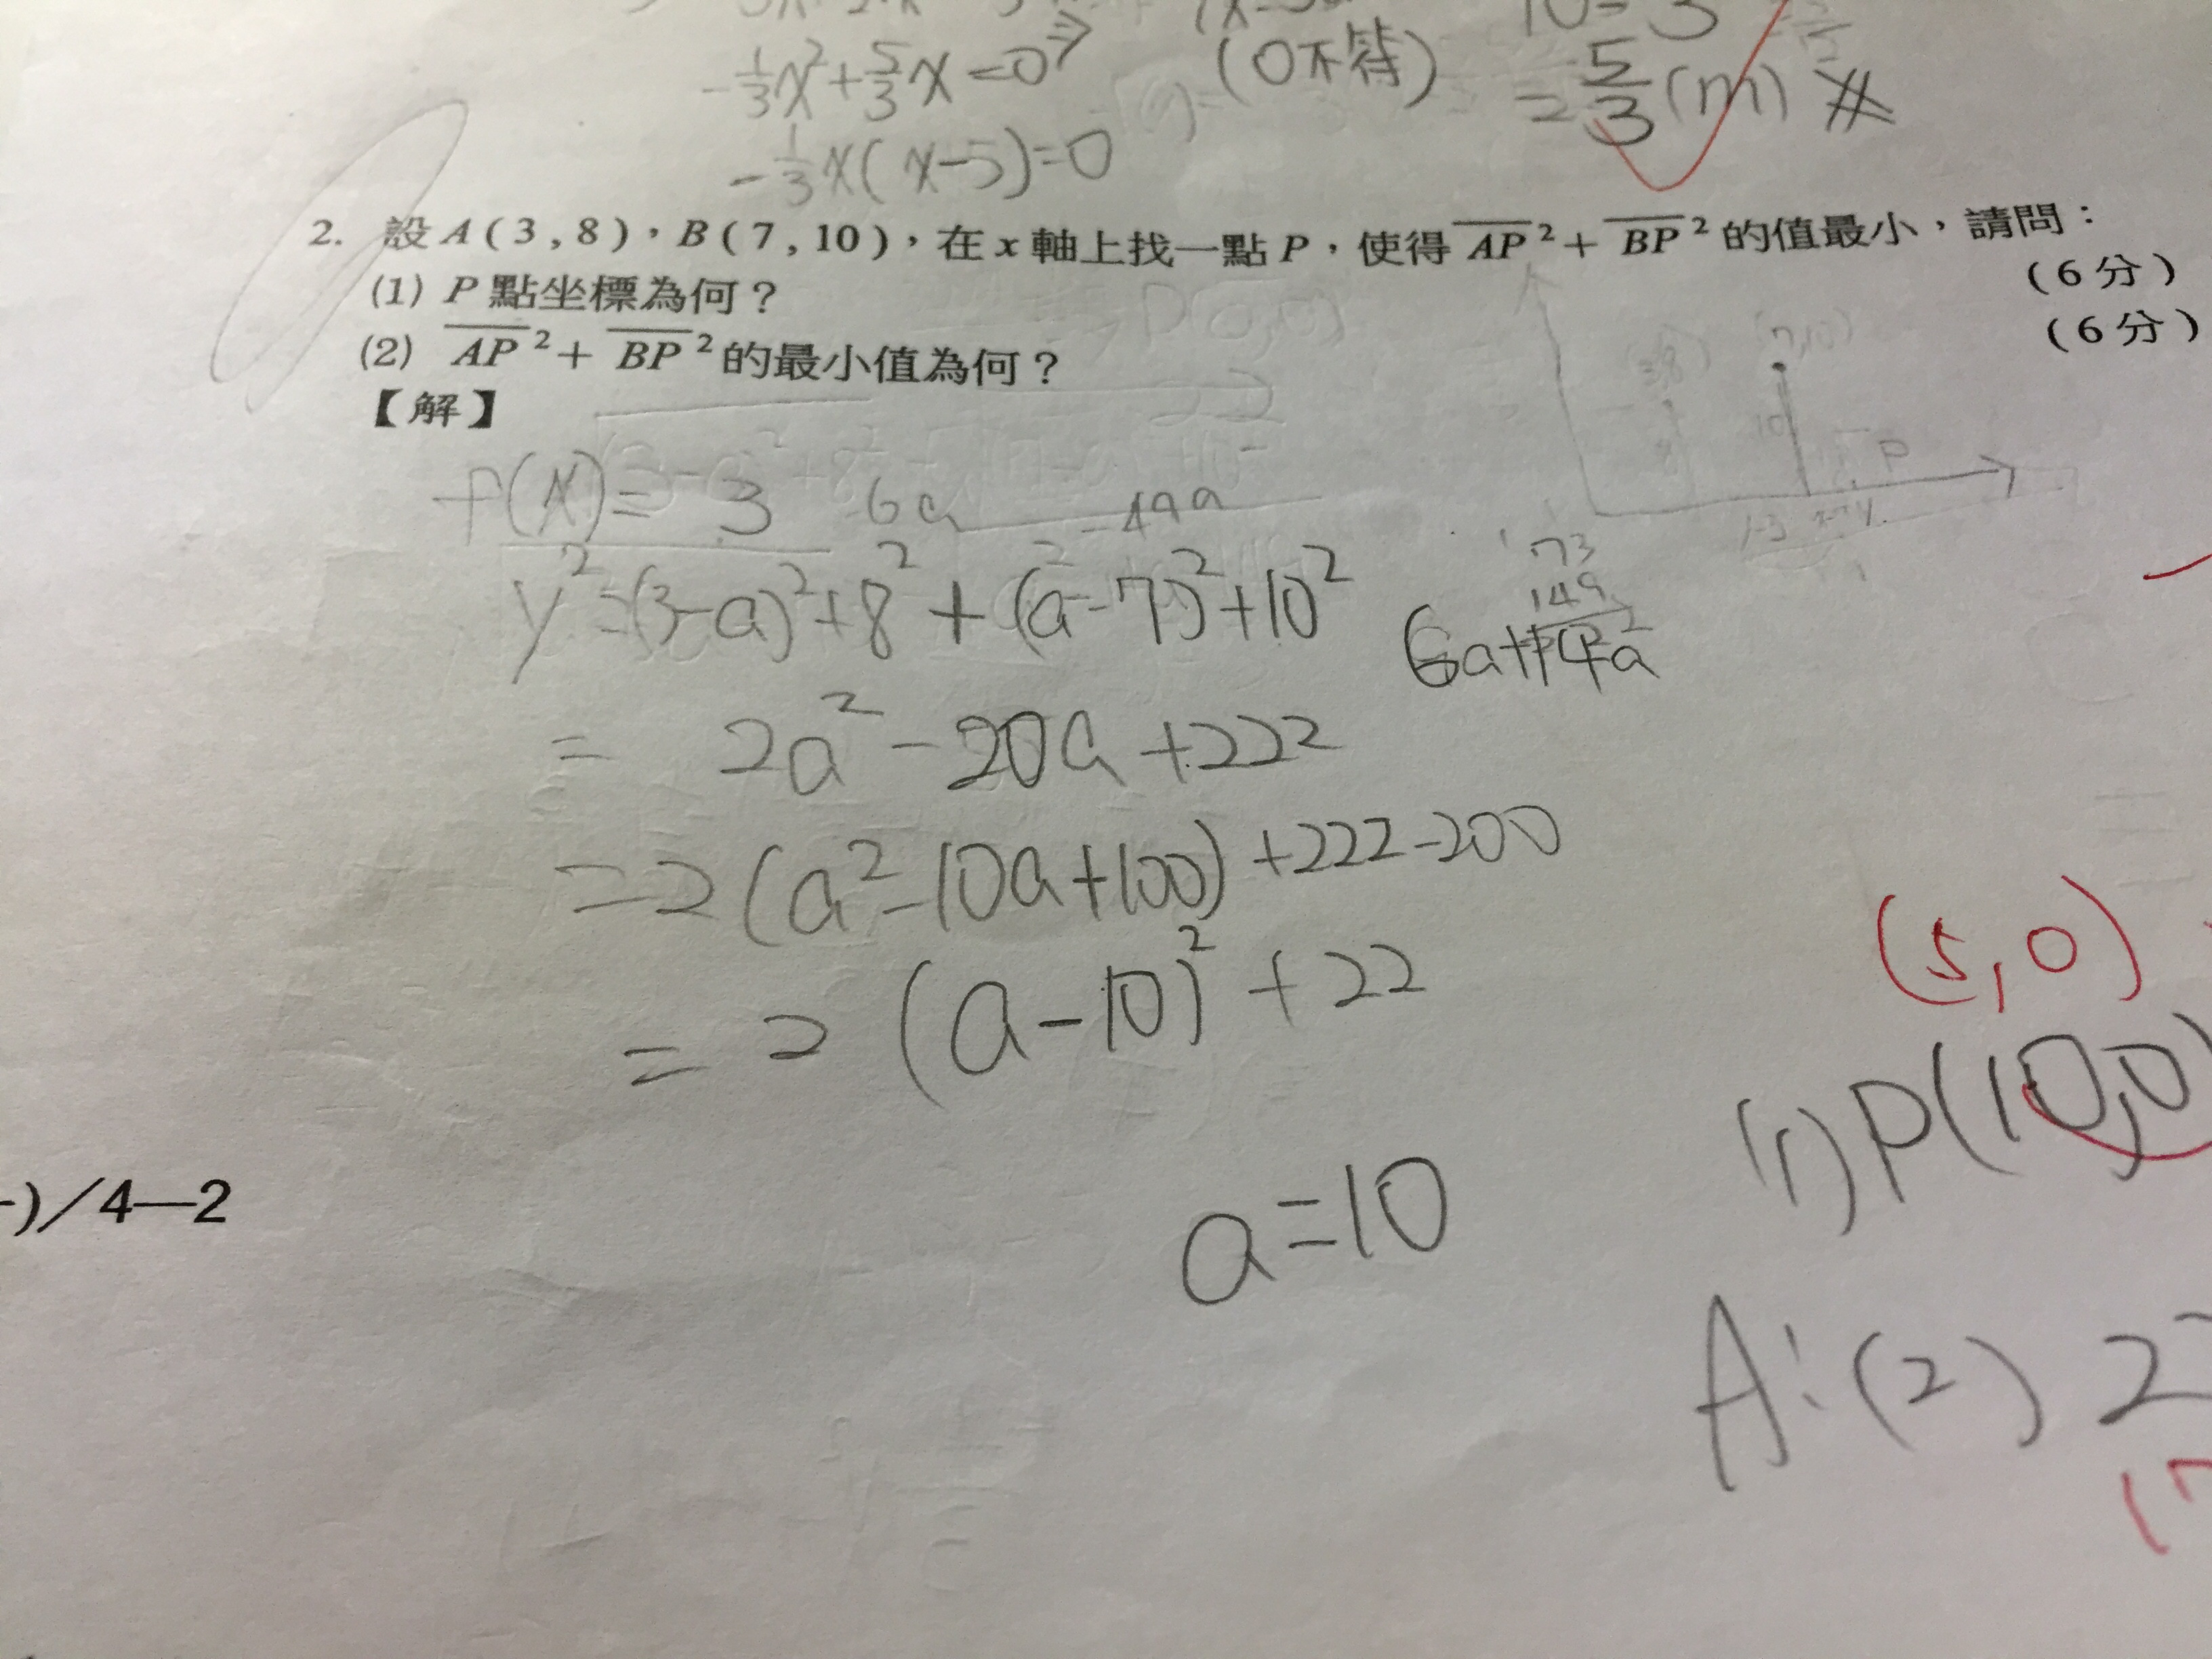 -1/3x²+5/3x=0⇒
(0不符)
=5/3(m)
-1/3x(x-5)=0
2. 設A(3,8),B(7,10),在x軸上找一點P,使得AP²+BP²的值最小,請問:
(1) P點坐標為何? (6分)
(2) AP²+BP²的最小值為何? (6分)
【解】
f(x)= 3 6a -49a
y²=(3-a)²+8²+(a-7)²+10²
73
149
6a+14a
= 2a²-20a+222
=2(a²-10a+100)+222-200
= 2(a-10)²+22
(5,0)
(1)P(10,0)
a=10
)/4—2
A:(2) 2
P